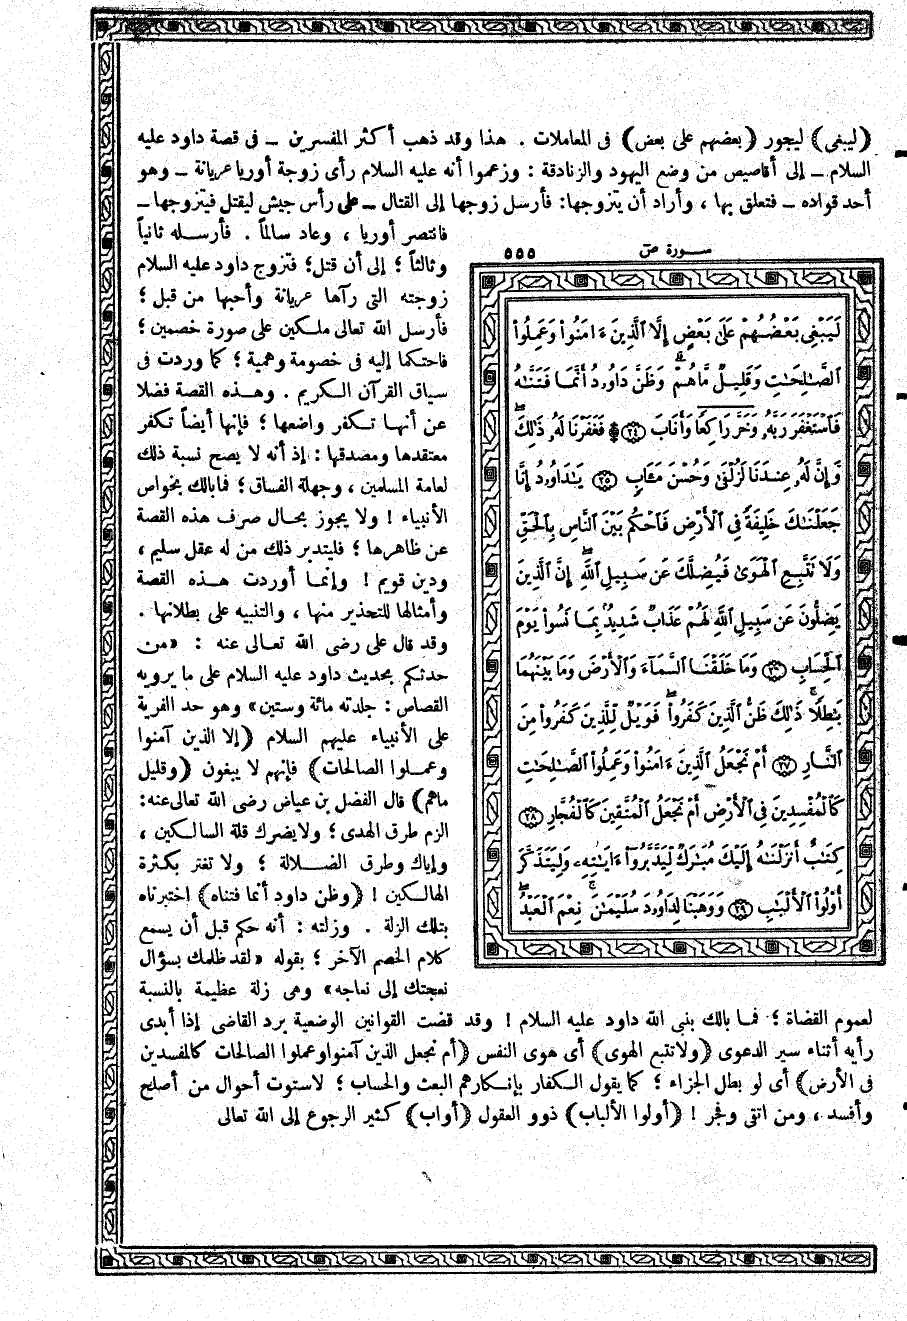 (ليبغى) ليجور (بعضهم على بعض) فى المعاملات . هذا وقد ذهب أكثر المفسرين ـ فى قصة داود عليه
السلام ـ إلى أقاصيص من وضع اليهود والزنادقة : وزعموا أنه عليه السلام رأى زوجة أوريا عريانة ـ وهو
أحد قواده ـ فتعلق بها ، وأراد أن يتزوجها: فأرسل زوجها إلى القتال ـ على رأس جيش ليقتل فيتزوجها ـ
فانتصر أوريا ، وعاد سالماً . فأرسله ثانياً
وثالثاً ؛ إلى أن قتل؛ فتزوج داود عليه السلام
زوجته التى رآها عريانة وأحبها من قبل ؛
فأرسل الله تعالى ملكين على صورة خصمين ؛
فاحتكما إليه فى خصومة وهمية ؛ كما وردت فى
سياق القرآن الكريم . وهذه القصة فضلا
عن أنها تكفر واضعها ؛ فإنها أيضاً تكفر
معتقدها ومصدقها : إذ أنه لا يصح نسبة ذلك
لعامة المسلمين ، وجهلة الفساق ؛ فما بالك بخواص
الأنبياء ! ولا يجوز بحال صرف هذه القصة
عن ظاهرها ؛ فليتدبر ذلك من له عقل سليم ،
ودين قويم ! وإنما أوردت هذه القصة
وأمثالها للتحذير منها ، والتنبيه على بطلانها .
وقد قال على رضى الله تعالى عنه : «من
حدثكم بحديث داود عليه السلام على ما يرويه
القصاص : جلدته مائة وستين» وهو حد الفرية
على الأنبياء عليهم السلام (إلا الذين آمنوا
وعملوا الصالحات) فإنهم لا يبغون (وقليل
ماهم) قال الفضل بن عياض رضى الله تعالى عنه:
الزم طرق الهدى ؛ ولا يضرك قلة السالكين ،
وإياك وطرق الضلالة ؛ ولا تغتر بكثرة
الهالكين ! (وظن داود أنما فتناه) اختبرناه
بتلك الزلة . وزلته : أنه حكم قبل أن يسمع
كلام الخصم الآخر ؛ بقوله «لقد ظلمك بسؤال
نعجتك إلى نعاجه» وهى زلة عظيمة بالنسبة
سورة ص ٥٥٥
لَيَبْغِى بَعْضُهُمْ عَلَىٰ بَعْضٍ إِلَّا ٱلَّذِينَ ءَامَنُوا۟ وَعَمِلُوا۟
ٱلصَّـٰلِحَـٰتِ وَقَلِيلٌ مَّا هُمْ ۗ وَظَنَّ دَاوُۥدُ أَنَّمَا فَتَنَّـٰهُ
فَٱسْتَغْفَرَ رَبَّهُۥ وَخَرَّ رَاكِعًا وَأَنَابَ ۩ ﴿٢٤﴾ فَغَفَرْنَا لَهُۥ ذَٰلِكَ ۖ
وَإِنَّ لَهُۥ عِندَنَا لَزُلْفَىٰ وَحُسْنَ مَـَٔابٍ ﴿٢٥﴾ يَـٰدَاوُۥدُ إِنَّا
جَعَلْنَـٰكَ خَلِيفَةً فِى ٱلْأَرْضِ فَٱحْكُم بَيْنَ ٱلنَّاسِ بِٱلْحَقِّ
وَلَا تَتَّبِعِ ٱلْهَوَىٰ فَيُضِلَّكَ عَن سَبِيلِ ٱللَّهِ ۚ إِنَّ ٱلَّذِينَ
يَضِلُّونَ عَن سَبِيلِ ٱللَّهِ لَهُمْ عَذَابٌ شَدِيدٌۢ بِمَا نَسُوا۟ يَوْمَ
ٱلْحِسَابِ ﴿٢٦﴾ وَمَا خَلَقْنَا ٱلسَّمَآءَ وَٱلْأَرْضَ وَمَا بَيْنَهُمَا
بَـٰطِلًا ۚ ذَٰلِكَ ظَنُّ ٱلَّذِينَ كَفَرُوا۟ ۚ فَوَيْلٌ لِّلَّذِينَ كَفَرُوا۟ مِنَ
ٱلنَّارِ ﴿٢٧﴾ أَمْ نَجْعَلُ ٱلَّذِينَ ءَامَنُوا۟ وَعَمِلُوا۟ ٱلصَّـٰلِحَـٰتِ
كَٱلْمُفْسِدِينَ فِى ٱلْأَرْضِ أَمْ نَجْعَلُ ٱلْمُتَّقِينَ كَٱلْفُجَّارِ ﴿٢٨﴾
كِتَـٰبٌ أَنزَلْنَـٰهُ إِلَيْكَ مُبَـٰرَكٌ لِّيَدَّبَّرُوٓا۟ ءَايَـٰتِهِۦ وَلِيَتَذَكَّرَ
أُو۟لُوا۟ ٱلْأَلْبَـٰبِ ﴿٢٩﴾ وَوَهَبْنَا لِدَاوُۥدَ سُلَيْمَـٰنَ ۚ نِعْمَ ٱلْعَبْدُ ۖ
لعموم القضاة ؛ فما بالك بنبى الله داود عليه السلام ! وقد قضت القوانين الوضعية برد القاضى إذا أبدى
رأيه أثناء سير الدعوى (ولا تتبع الهوى) أى هوى النفس (أم نجعل الذين آمنوا وعملوا الصالحات كالمفسدين
فى الأرض) أى لو بطل الجزاء ؛ كما يقول الكفار بإنكارهم البعث والحساب ؛ لاستوت أحوال من أصلح
وأفسد ، ومن اتقى وفجر ! (أولوا الألباب) ذوو العقول (أواب) كثير الرجوع إلى الله تعالى